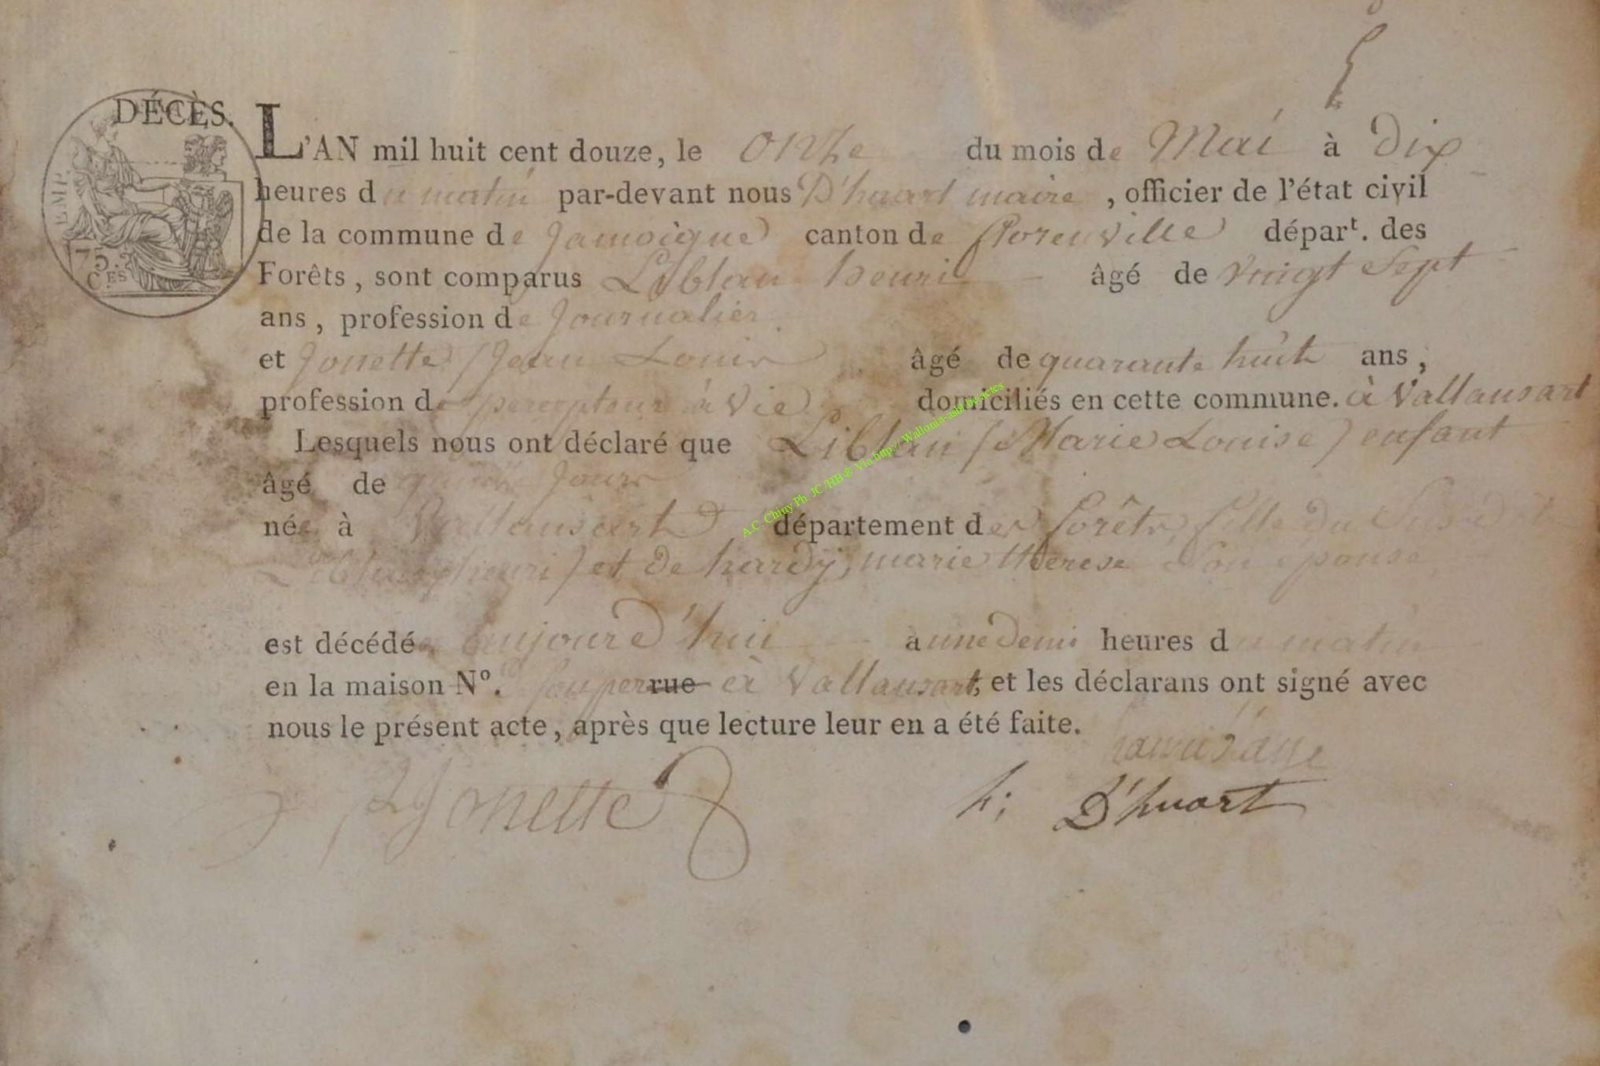 5
DÉCÈS.
L'AN mil huit cent douze, le onze du mois de Mai à dix
heures du matin par-devant nous D'huart maire, officier de l'état civil
de la commune de Jamoigne canton de florenville départ. des
Forêts, sont comparus Liblan henri âgé de vingt Sept
ans, profession de Journalier
et Jonette (Jean Louis) âgé de quarante huit ans,
profession de percepteur à vie domiciliés en cette commune. à Vallansart
Lesquels nous ont déclaré que Liblan (Marie Louise) enfant
âgé de jours
née à Vallansart département des forêts, fille du
henri) et de hardy, marie therese son épouse
est décédée aujourd'hui à une demi heures du matin
en la maison N°. rue à Vallansart, et les déclarans ont signé avec
nous le présent acte, après que lecture leur en a été faite.
Jonette h; D'huart
EMP.
75.
CES
A.C. Chiny Ph JC/HB &